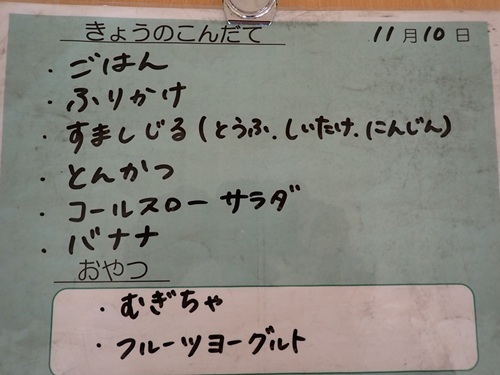 きょうのこんだて 11月10日
・ごはん
・ふりかけ
・すましじる(とうふ.しいたけ.にんじん)
・とんかつ
・コールスローサラダ
・バナナ
おやつ
・むぎちゃ
・フルーツヨーグルト